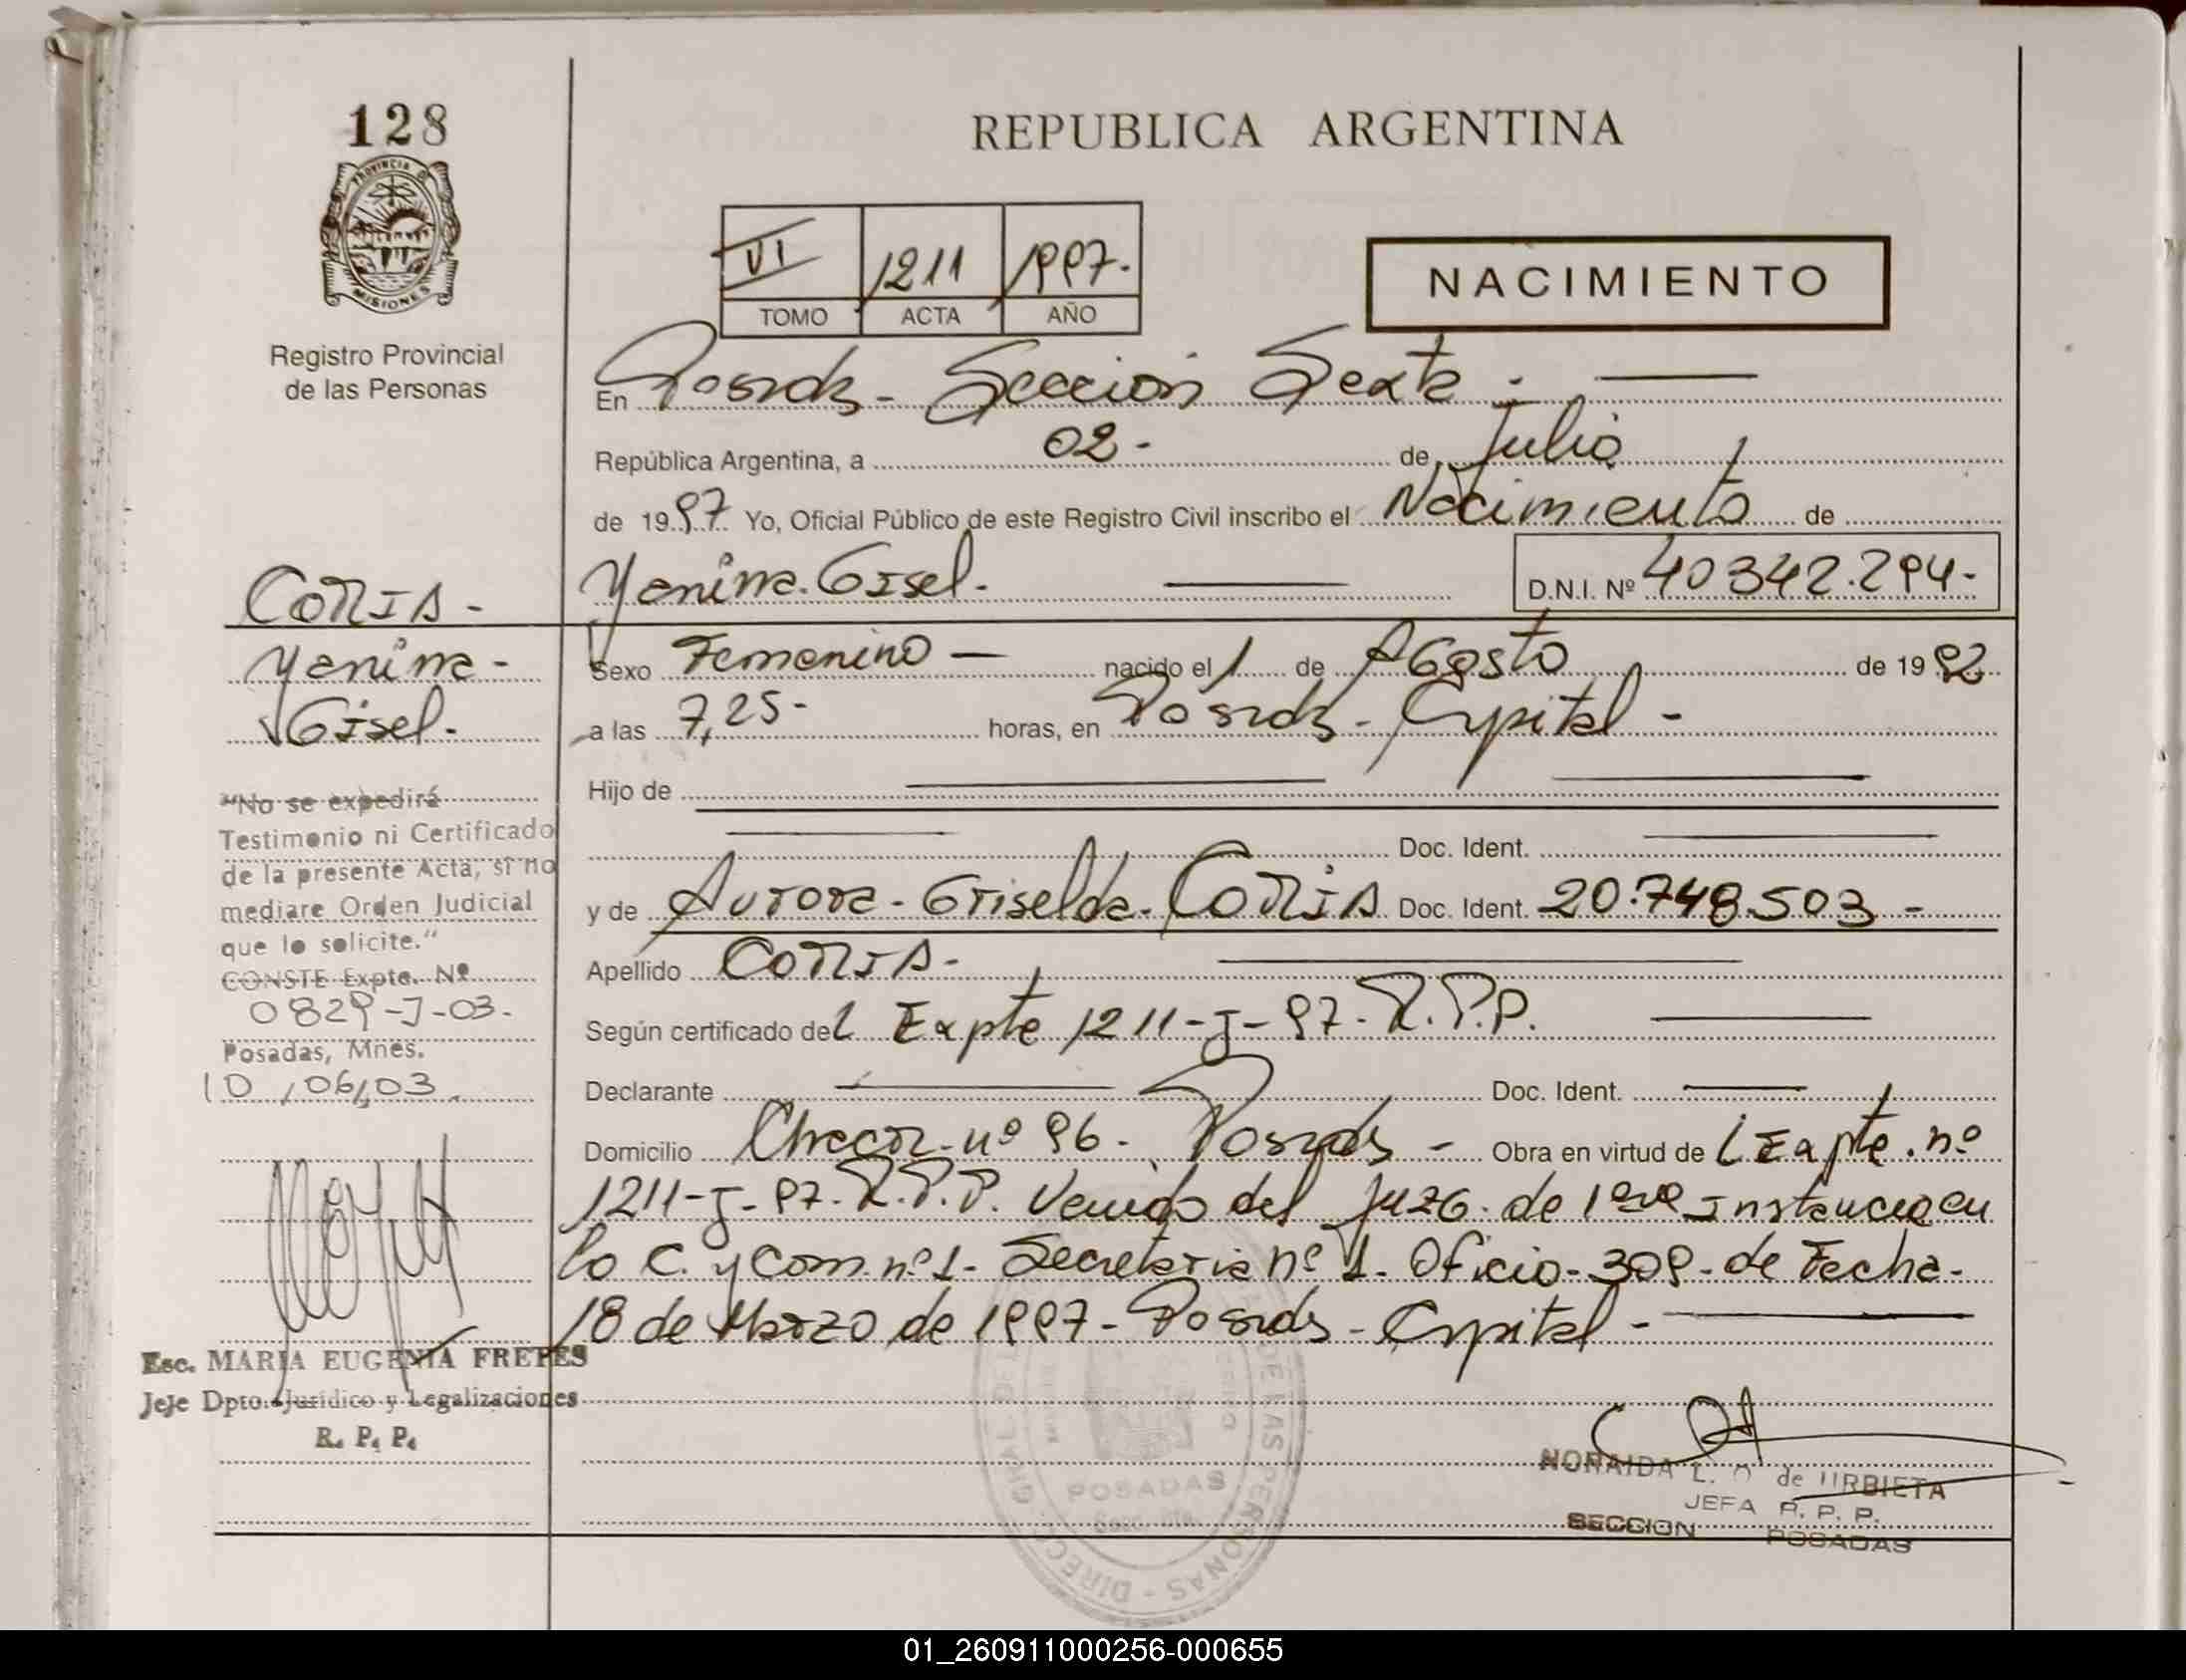 128
PROVINCIA DE
MISIONES
Registro Provincial
de las Personas
REPUBLICA ARGENTINA
VI 1211 1997.
TOMO ACTA AÑO
NACIMIENTO
En Posadas - Sección Sexta -
República Argentina, a 02 - de Julio
de 1997 Yo, Oficial Público de este Registro Civil inscribo el Nacimiento de
Yanina Gisel. D.N.I. Nº 40342.294-
Sexo Femenino — nacido el 1 de Agosto de 1992
a las 7,25- horas, en Posadas - Capital -
Hijo de
Doc. Ident.
y de Aurora - Griselda - CORIA Doc. Ident. 20.748.503 -
Apellido CORIA -
Según certificado del Expte 1211-J-97- R.P.P.
Declarante Doc. Ident.
Domicilio nº 96 - Posadas - Obra en virtud del Expte. nº
1211-J-97- R.P.P. Venido del Juzg. de 1era Instancia en
lo C. y Com. nº 1 - Secretaria nº 1 - Oficio - 309 - de Fecha -
18 de Marzo de 1997 - Posadas - Capital -
CORIA -
Yanina -
Gisel -
"No se expedirá
Testimonio ni Certificado
de la presente Acta, si no
mediare Orden Judicial
que lo solicite."
CONSTE Expte. Nº
0829-J-03-
Posadas, Mnes.
10/06/03
Esc. MARIA EUGENIA FRETES
Jefe Dpto. Jurídico y Legalizaciones
R. P. P.
NORAIDA L. de URBIETA
JEFA R. P. P.
SECCION POSADAS
DE LAS PERSONAS - DIRECC. GRAL. DE
POSADAS
01_260911000256-000655